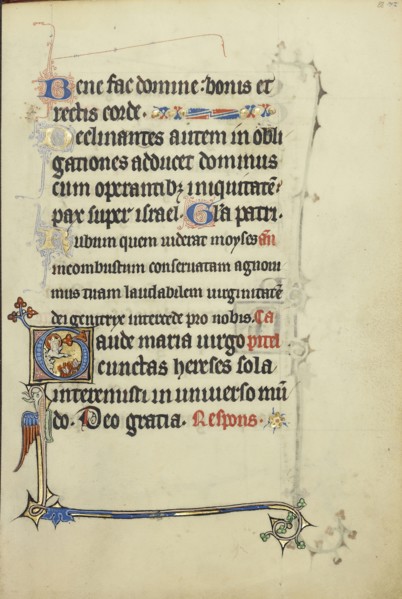 Bene fac domine: bonis et
rectis corde.
Declinantes autem in obli
gationes adducet dominus
cum operantibꝫ iniquitatē:
pax super israel. Gl̄a patri.
Rubum quem viderat moyses an̄
incombustum conservatam agnovi
mus tuam laudabilem virginitatē
dei genitrix intercede pro nobis. Ca
Gaude maria virgo pitl
cunctas hereses sola
interemisti in universo mū
do. Deo gratia. Respons.